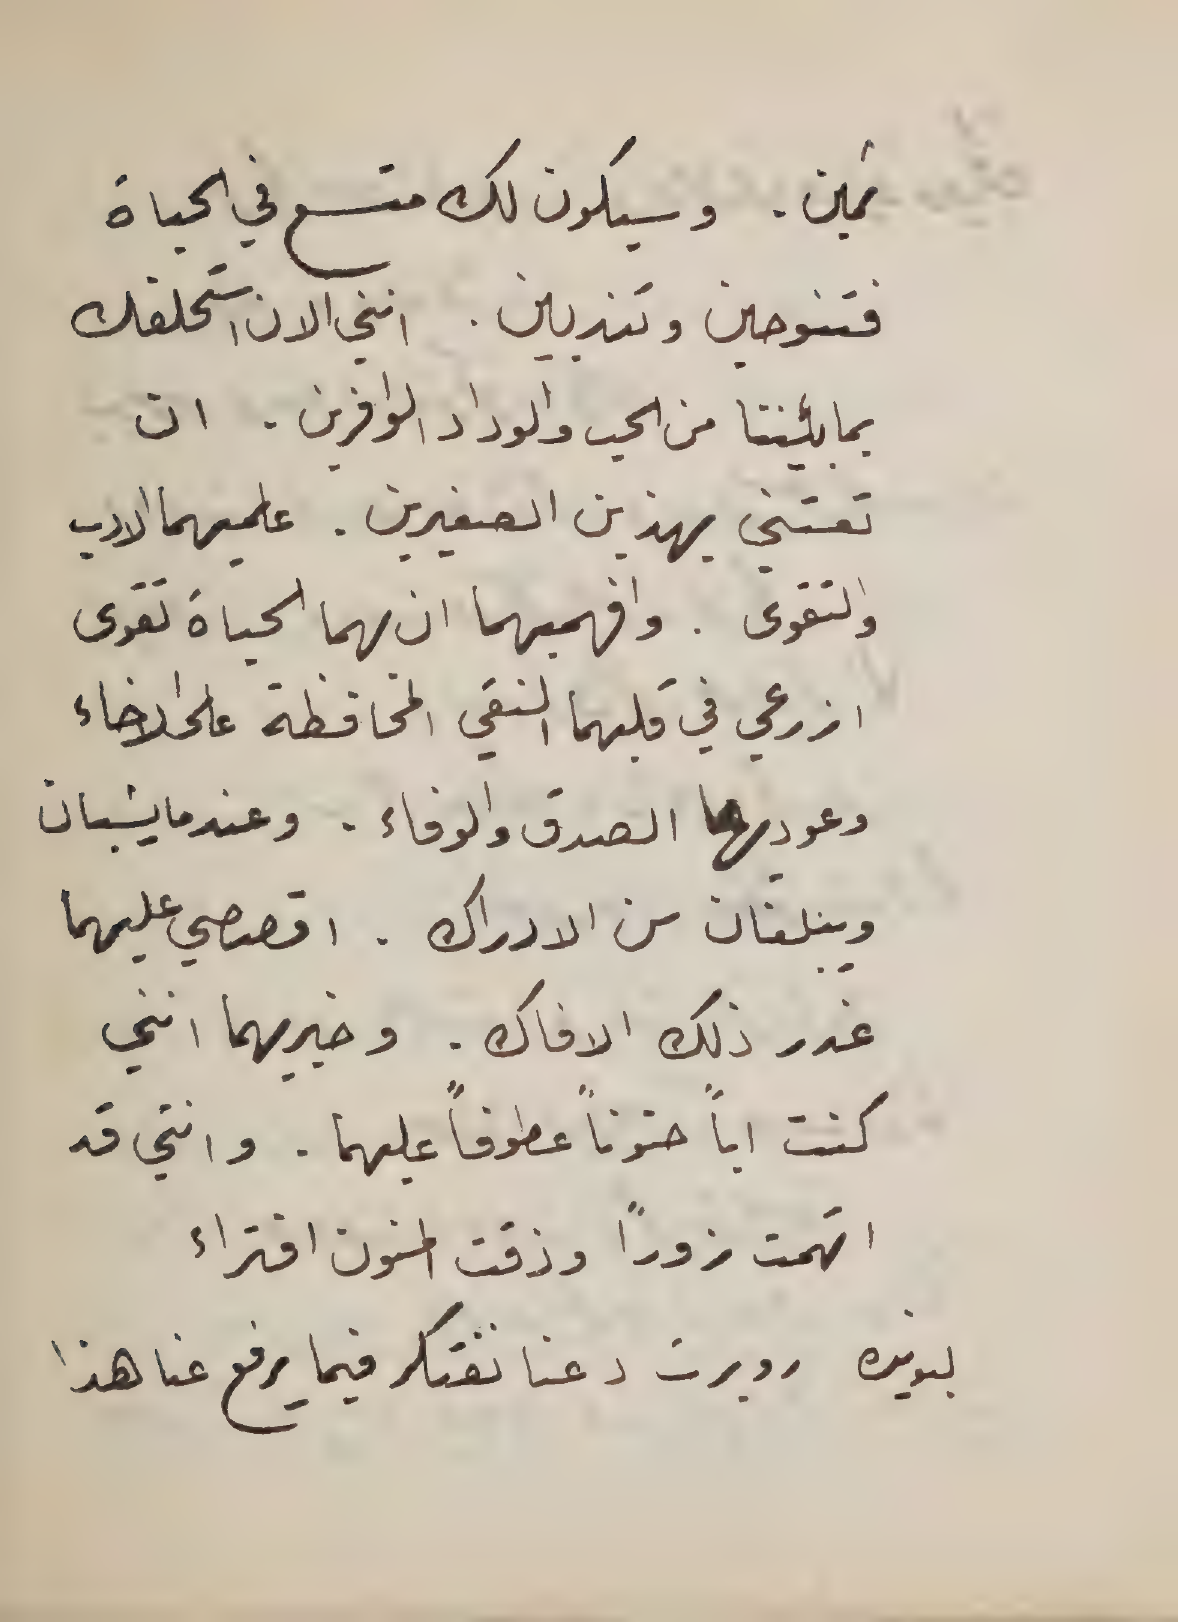 ثمين . وسيكون لك متسع في الحياة
فتنوحين وتندبين . انني الان استحلفك
بما بيننا من الحب والوداد الوافرين . ان
تعتني بهذين الصغيرين . علميهما الادب
والتقوى . وافهميهما ان مهما الحياة تقوى
ازرعي في قلبهما النقي المحافظة على الاخاء
وعوديهما الصدق والوفاء . وعندما يشبان
ويبلغان سن الادراك . اقصصي عليهما
غدر ذلك الافاك . وخبريهما انني
كنت اباً حنوناً عطوفاً عليهما . وانني قد
اتهمت زوراً وذقت المنون افتراء
روبرت دعنا نفتكر فيما يرفع عنا هذا